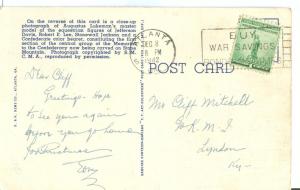 On the reverse of this card is a close-up
photograph of Augustus Lukeman's master
model of the equestrian figures of Jefferson
Davis, Robert E. Lee, Stonewall Jackson and a
Confederate color bearer, constituting the first
section of the central group of the Memorial
to the Confederacy now being carved on Stone
Mountain. Photograph copyrighted by S.M.
C.M.A., reproduced by permission.
ATLANTA
DEC 8
PM
1942
BUY
WAR SAVINGS
POST CARD
Dear Cliff
Greetings. Hope
to see you again
before you go home
for Christmas
Tony
Mr Cliff Mitchell
K. M. I.
Lyndon
Ky-